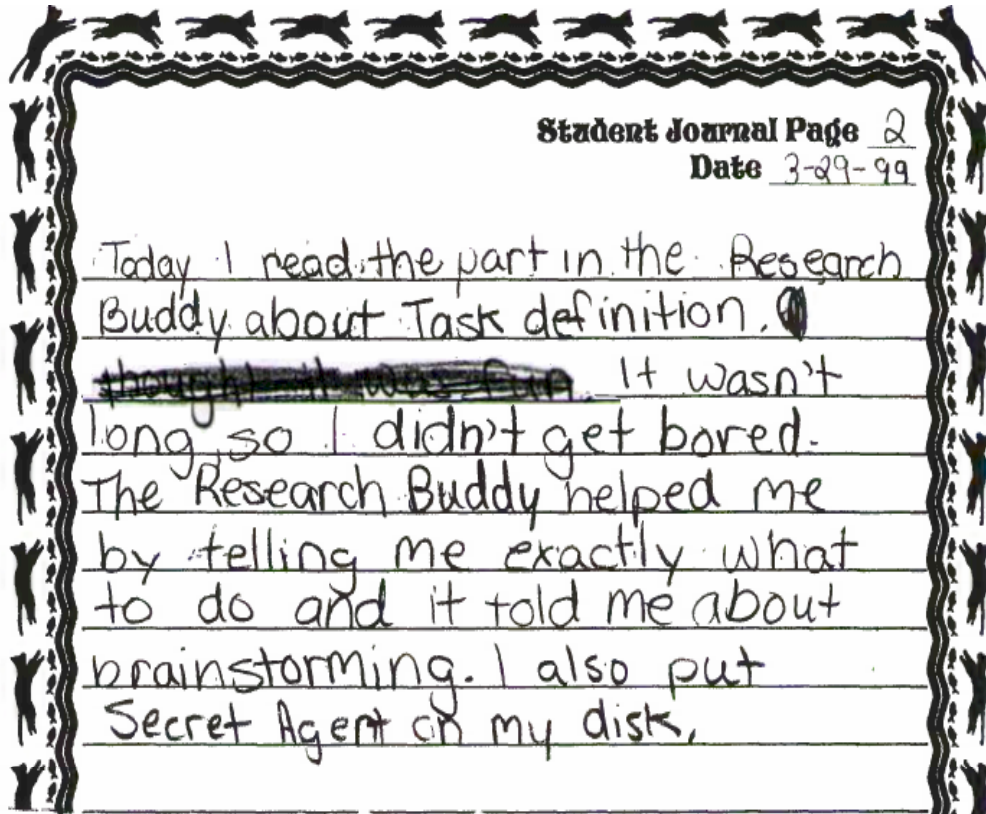 Student Journal Page 2
Date 3-29-99
Today I read the part in the Research
Buddy about Task definition.
thought it was fun. It wasn't
long, so I didn't get bored.
The Research Buddy helped me
by telling me exactly what
to do and it told me about
brainstorming. I also put
Secret Agent on my disk.